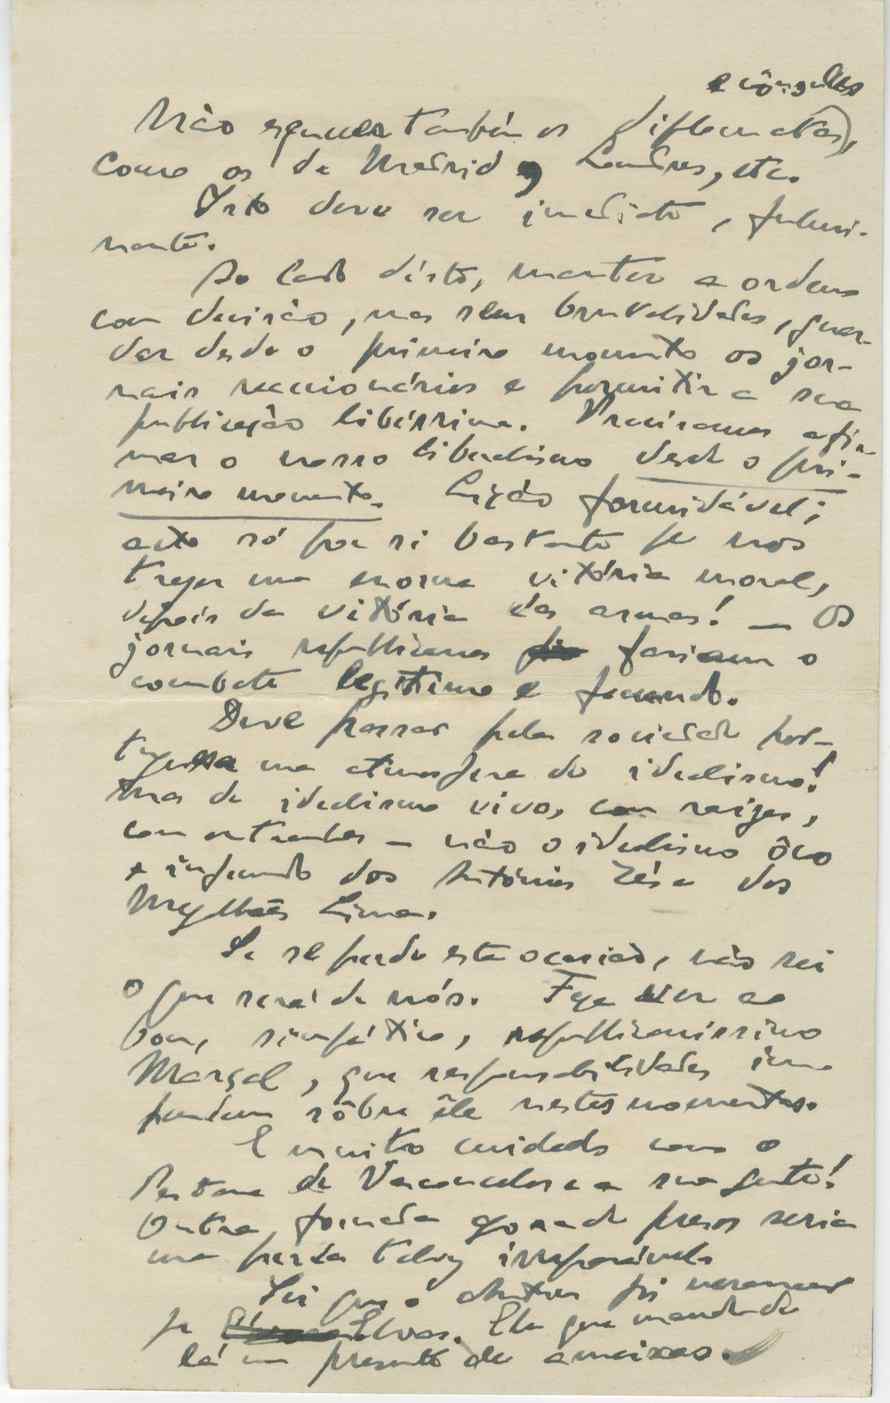 e cônsules
Não esquecer também os diplomatas,
como os de Madrid, Londres, etc.
Isto deve ser imediato, fulmi-
nante.
Ao lado disto, manter a ordem
com decisão, mas sem brutalidades, guar-
dar desde o primeiro momento os jor-
nais reaccionários e permitir a sua
publicação libérrima. Precisamos afir-
mar o nosso liberalismo desde o pri-
meiro momento. Lição formidável;
acto só por si bastante pa nos
trazer uma enorme vitória moral,
depois da vitória das armas! — Os
jornais republicanos fariam o
combate legítimo e fecundo.
Deve passar pela sociedade por-
tuguesa uma atmosfera de idealismo!
Mas de idealismo vivo, com raízes,
com entranhas — não o idealismo ôco
e infecundo dos Antónios Zés e dos
Magalhães Lima.
Se se perde esta ocasião, não sei
o que será de nós. Faça ver ao
bom, simpático, republicaníssimo
Marçal, que responsabilidades im-
pendem sôbre êle nestes momentos.
E muito cuidado com o
Pestana de Vasconcelos e a sua gente!
Outra fornada de presos seria
uma perda talvez irreparável.
Sei que o foi
pa Elvas. Ele que mande de
lá um presente de ameixas.